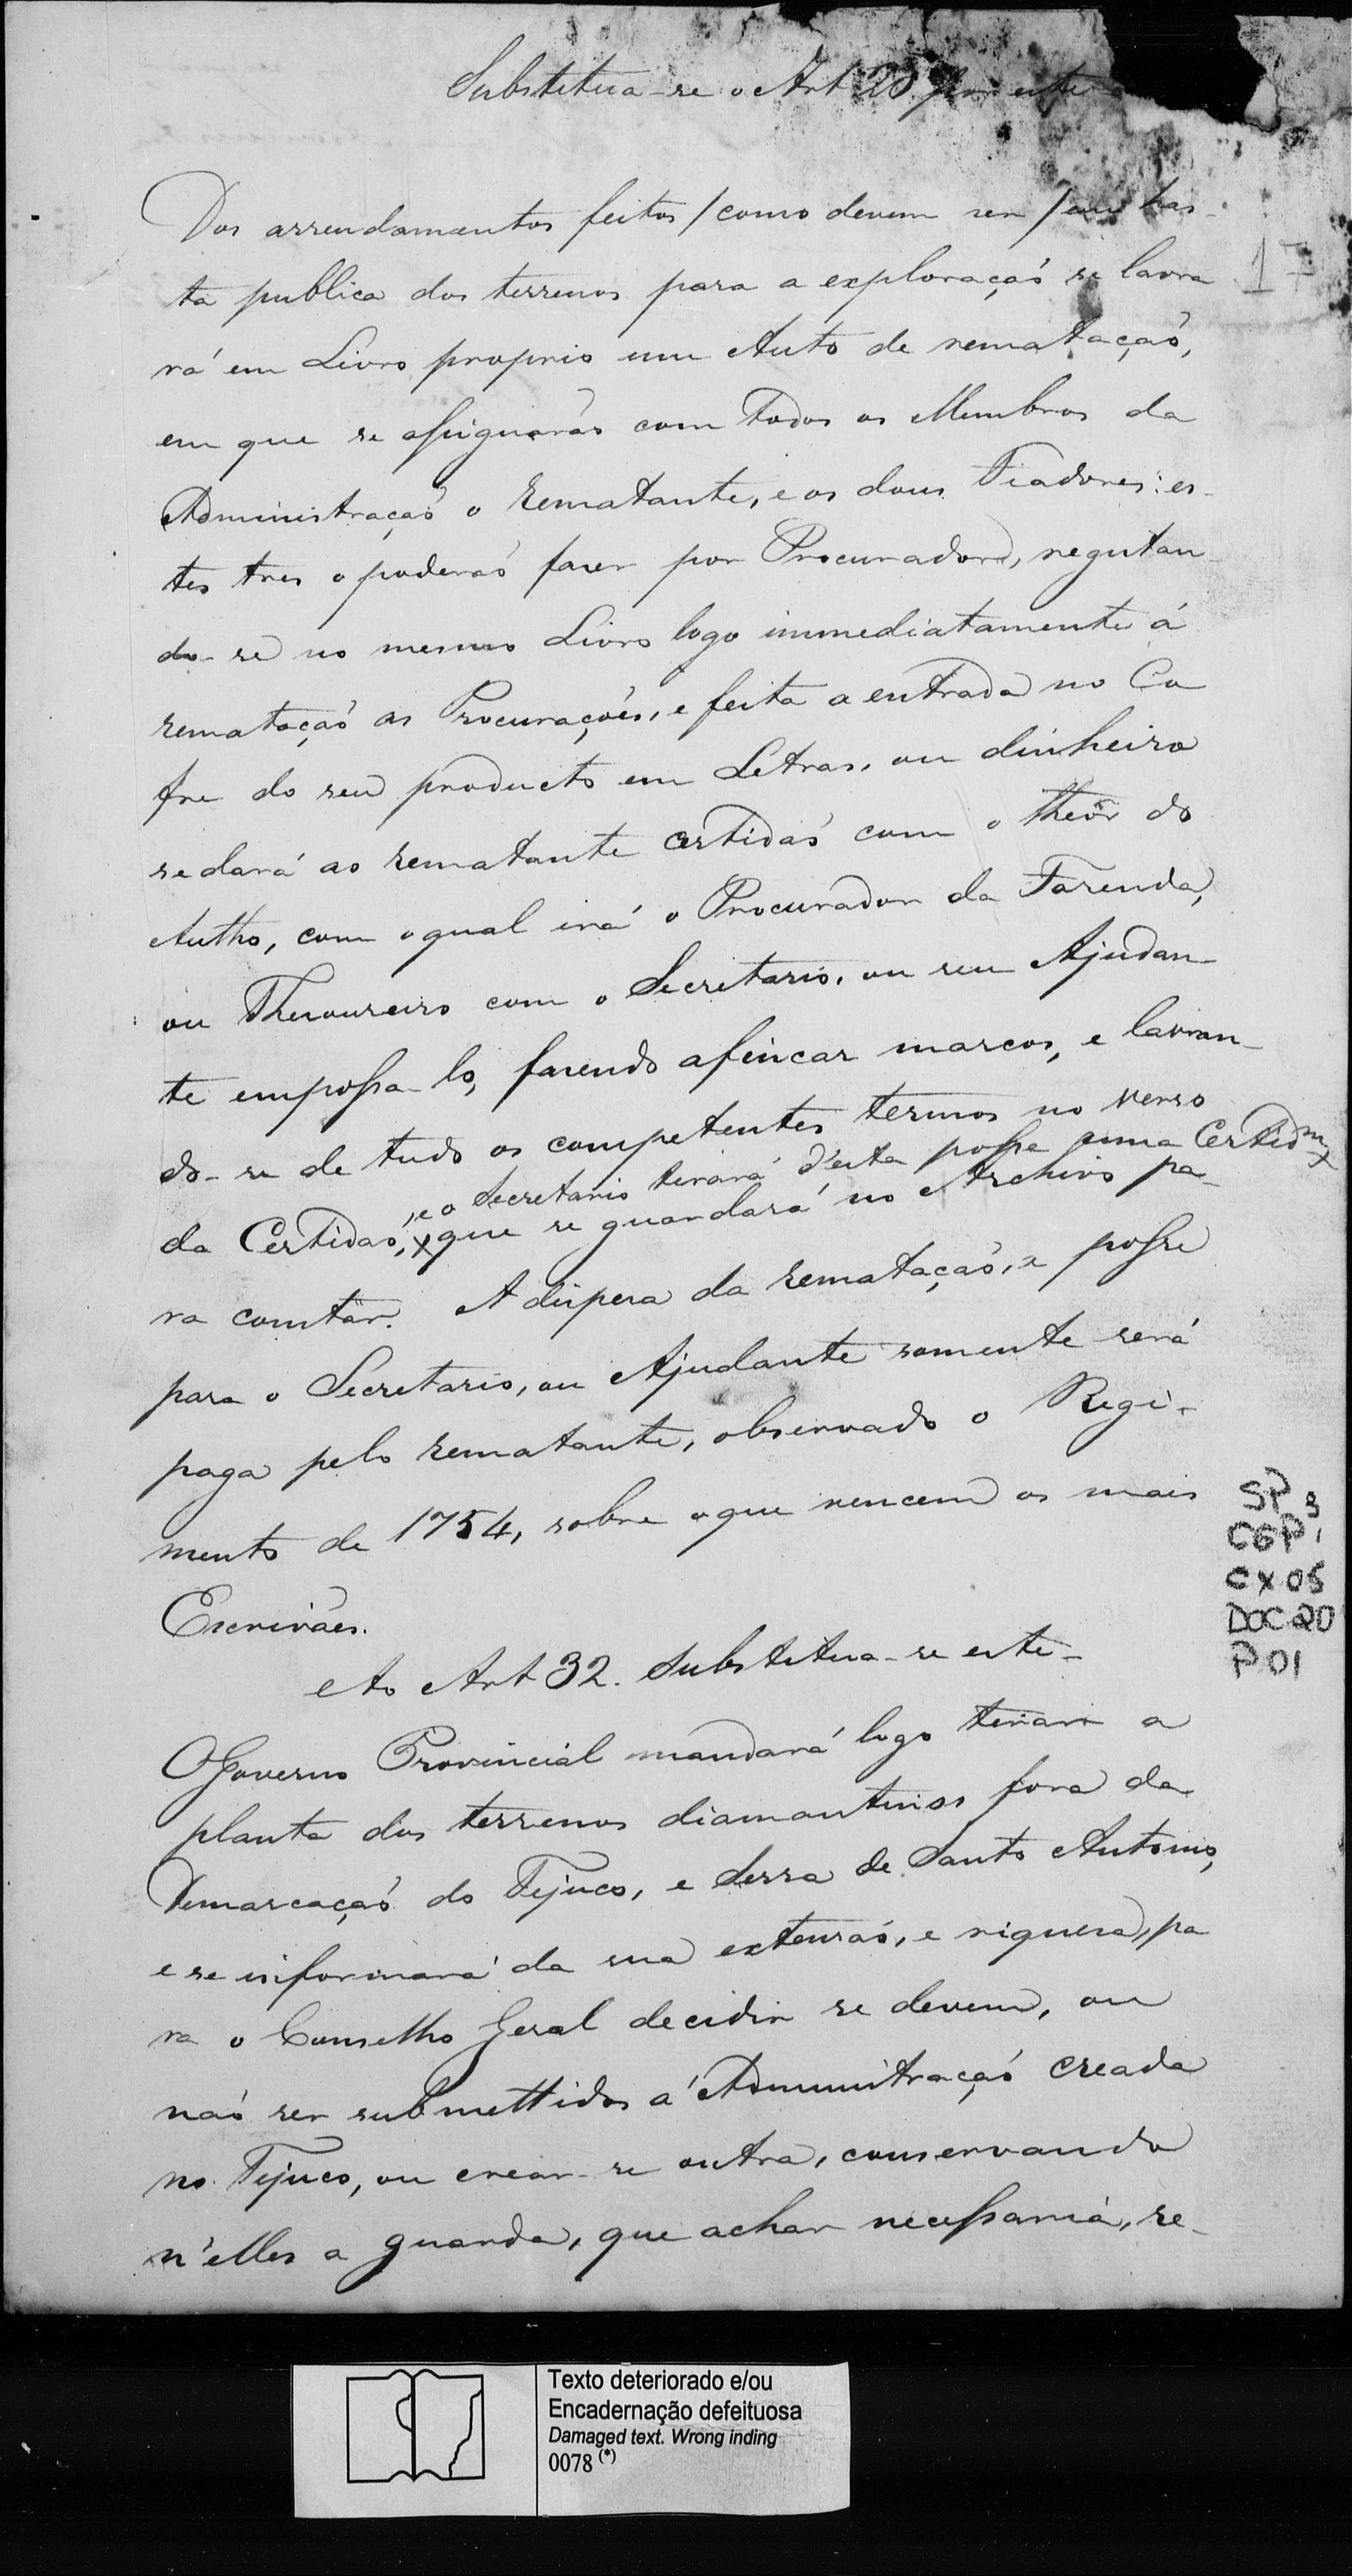 Substitua-se o Art 20 por este
Dos arrendamentos feitos /como devem ser/ em has-
ta publica dos terrenos para a exploraçaõ se lavra
17
rá em Livro proprio um Auto de remataçaõ,
em que se assignaraõ com todos os Membros da
Administraçaõ o rematante, e os dous Fiadores: es-
tes tres o poderaõ fazer por Procurador, registan
do-se no mesmo Livro logo immediatamente á
remataçaõ as Procuraçoẽs, e feita a entrada no Co
fre do seu producto em Letras, ou dinheiro
se dará ao rematante certidaõ com o theor do
Autho, com o qual irá o Procurador da Fazenda,
ou Thesoureiro com o Secretario, ou seu Ajudan-
te empossa-lo, fazendo afincar marcos, e lavran-
do-se de tudo os competentes termos no verso
, e o Secretario tirará d'esta posse uma Certidm x
da Certidaõ, x que se guardará no Archivo pa-
ra constar. A dispesa da remataçaõ, e posse
para o Secretario, ou Ajudante somente será
paga pelo rematante, observado o Regi-
mento de 1754, sobre o que vencem os mais
Escrivães.
SP
CGP 1 3
CX 05
DOC 20
P 01
Ao Art 32. Substitua-se este-
O Governo Provincial mandará logo tirar a
planta dos terrenos diamantinos fora da
Demarcaçaõ do Tejuco, e Serra de Santo Antonio,
e se informará da sua extensaõ, e riqueza, pa
ra o Conselho Geral decidir se devem, ou
naõ ser submettidos á Administraçaõ creada
no Tejuco, ou crear-se outra, conservando
n'elles a guarda, que achar necessaria, se-
Texto deteriorado e/ou
Encadernação defeituosa
Damaged text. Wrong inding
0078 (*)